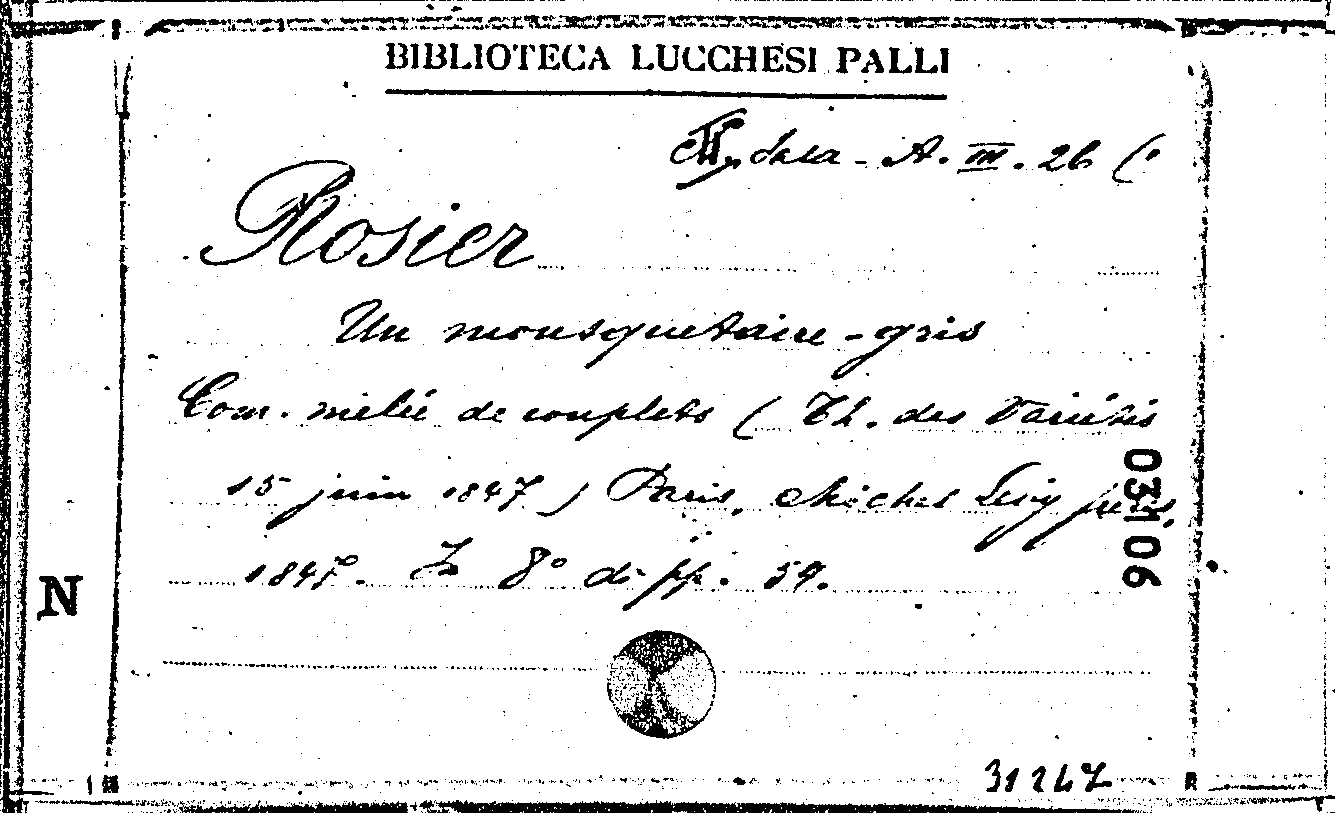 BIBLIOTECA LUCCHESI PALLI
Sala - A. III. 26 (
Rosier
Un mousquetaire-gris
Com. mêlée de couplets ( Th. des Variétés
15 juin 1847 ) Paris, Michel Lévy frères
1847. In 8° di pp. 59.
03106
N
31247